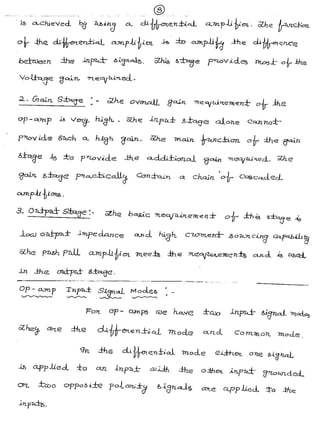 3
is achieved by using a differential amplifier. The function
of the differential amplifier is to amplify the difference
between the input signals. This stage provides most of the
Voltage gain required.
2. Gain Stage :- The overall gain requirement of the
op-amp is very high. The input stage alone cannot
provide such a high gain. The main function of the gain
stage is to provide the additional gain required. The
gain stage practically contain a chain of cascaded
amplifiers.
3. Output Stage :- The basic requirement of this stage is
low output impedance and high current sourcing capability
The push pull amplifier meets the requirements and is used
in the output stage.
Op-amp Input Signal Modes :-
For op-amps we have two input signal modes
They are the differential mode and common mode.
In the differential mode either one signal
is applied to an input with the other input grounded
or two opposite polarity signals are applied to the
inputs.